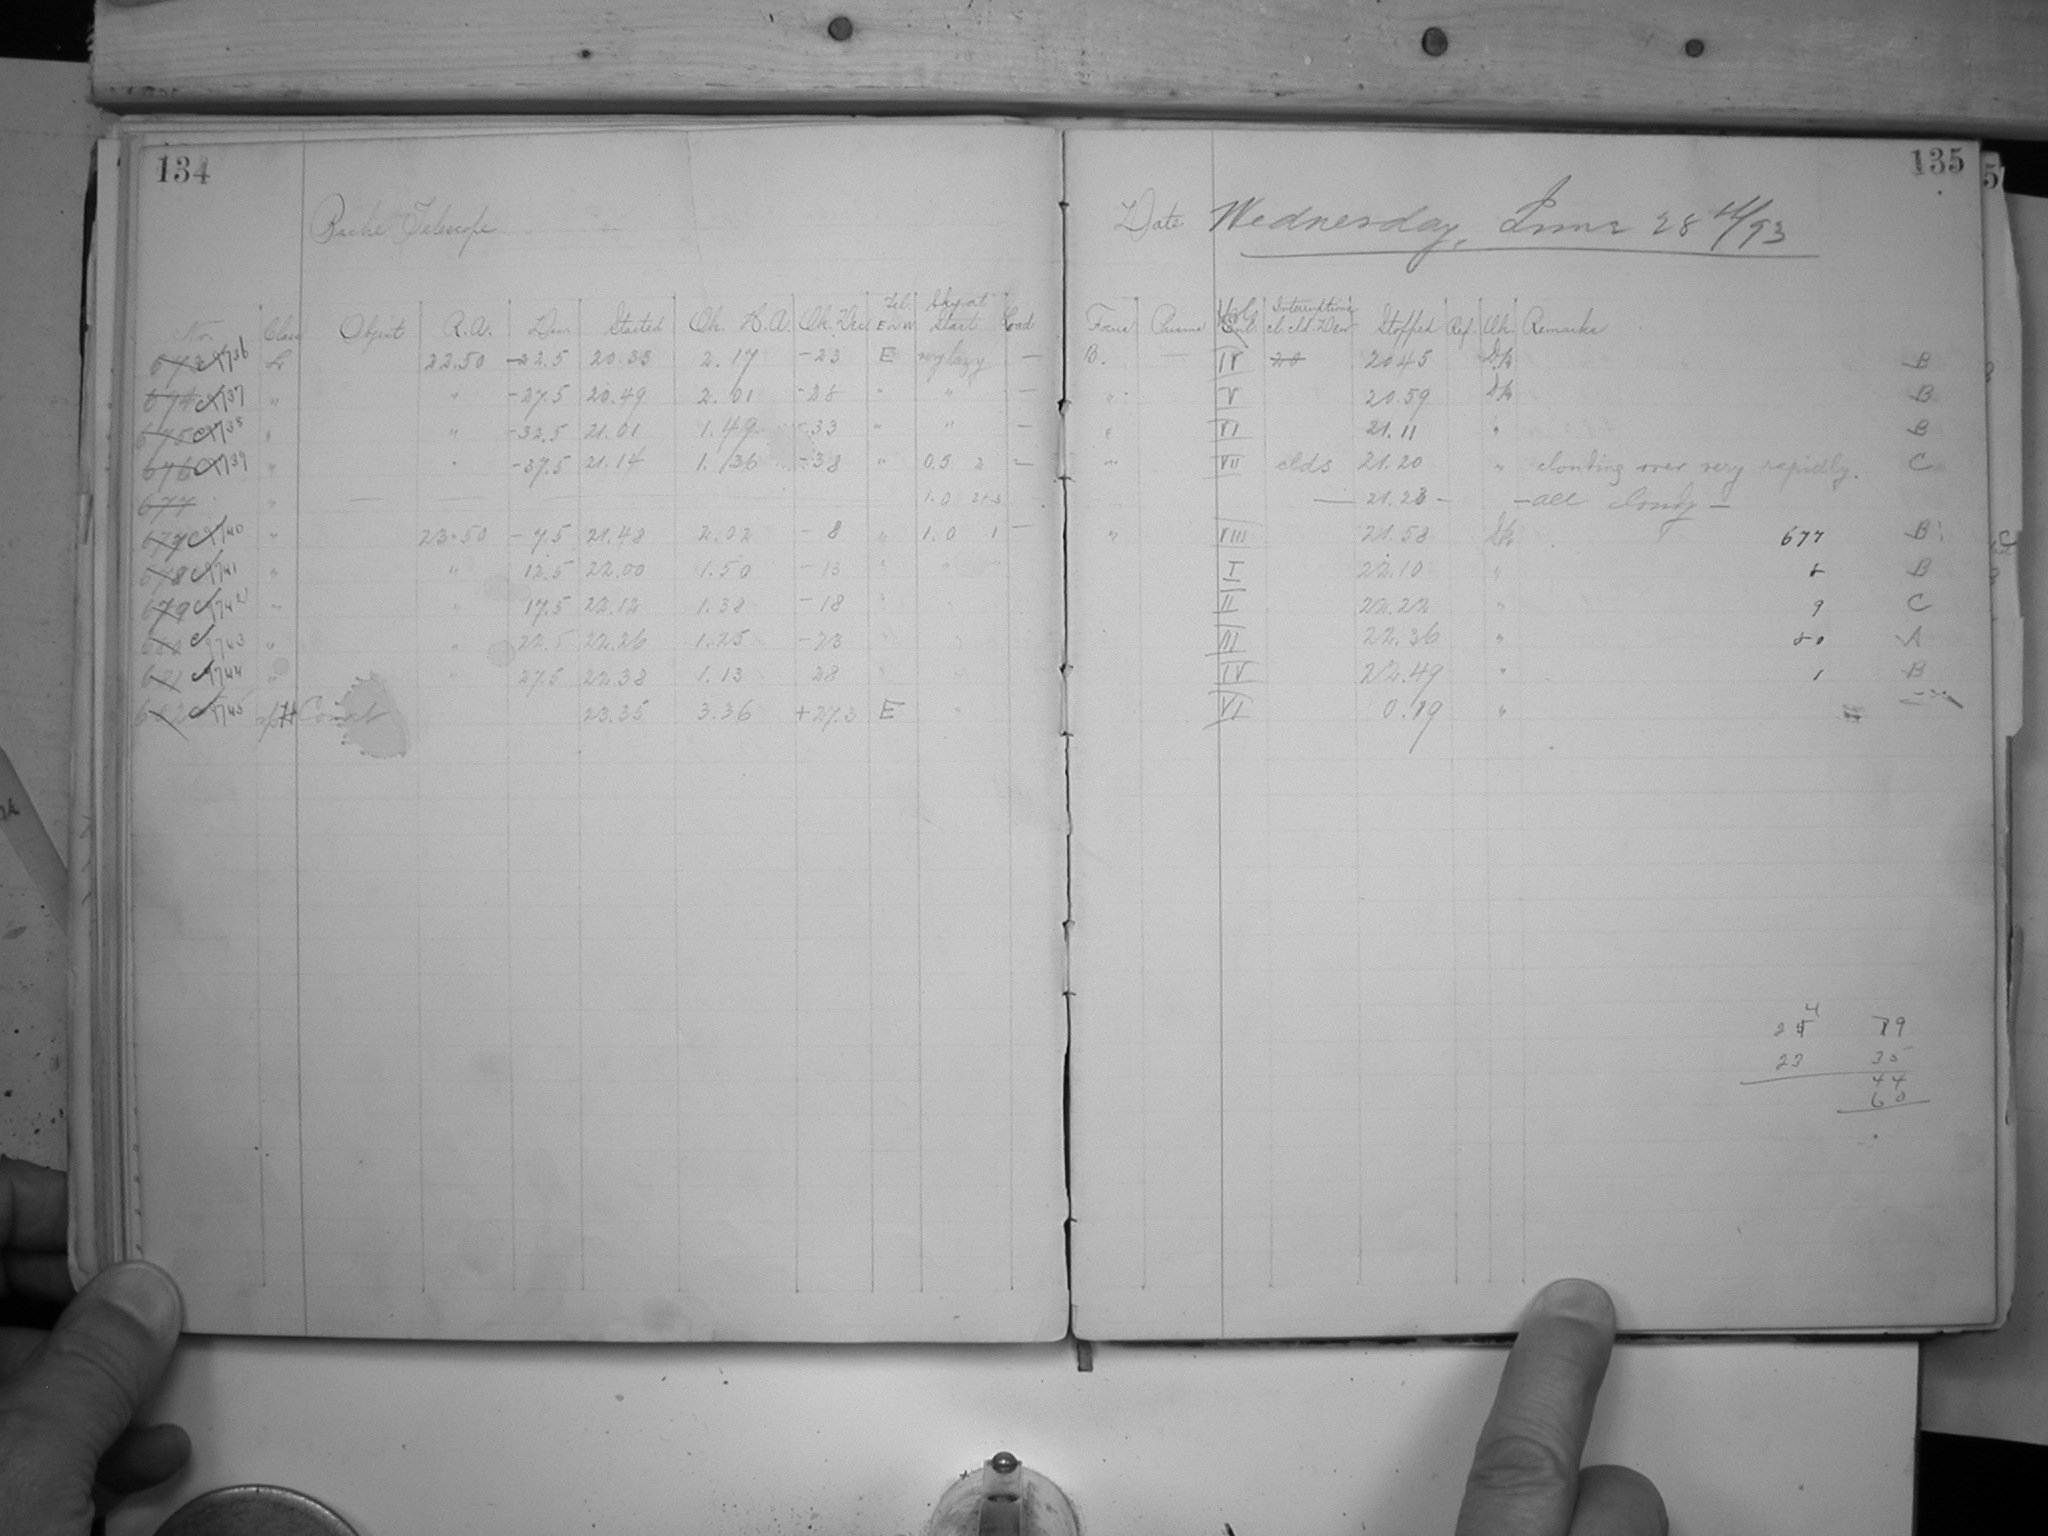 134
135
Bache Telescope
Date Wednesday, June 28th/93
No. Class Object R.A. Dec Started Ob. H.A. Ob. Dec Tel. E or W Sky at Start
Focus Prisms Stopped Ref. Ob. Remarks
673 9736 L 22.50 -22.5 20.35 2.17 -23 E very hazy — B. — IV 20 20.45 B
674 9737 " " -27.5 20.49 2.01 -28 " " — " V 20.59 B
675 9738 " " -32.5 21.01 1.49 -33 " " — " VI 21.11 " B
676 9739 " " -37.5 21.14 1.36 -38 " 0.5 2 — " VII clds 21.20 " clouding over very rapidly. C
677 " — — — 1.0 — 21.23 — — all cloudy —
677 9740 " 23.50 -7.5 21.48 2.02 -8 " 1.0 1 — " VIII 21.58 677 B
678 9741 " " 12.5 22.00 1.50 -13 " " I 22.10 " 8 B
679 9742 " " 17.5 22.12 1.38 -18 " II 22.22 " 9 C
680 9743 " " 22.5 22.26 1.25 -23 " " III 22.36 " 80 A
681 9744 " " 27.5 22.38 1.13 28 " " IV 22.49 " 1 B
682 9745 Comet 23.35 3.36 +27.3 E " VI 0.19 "
4
25 79
23 35
44
60